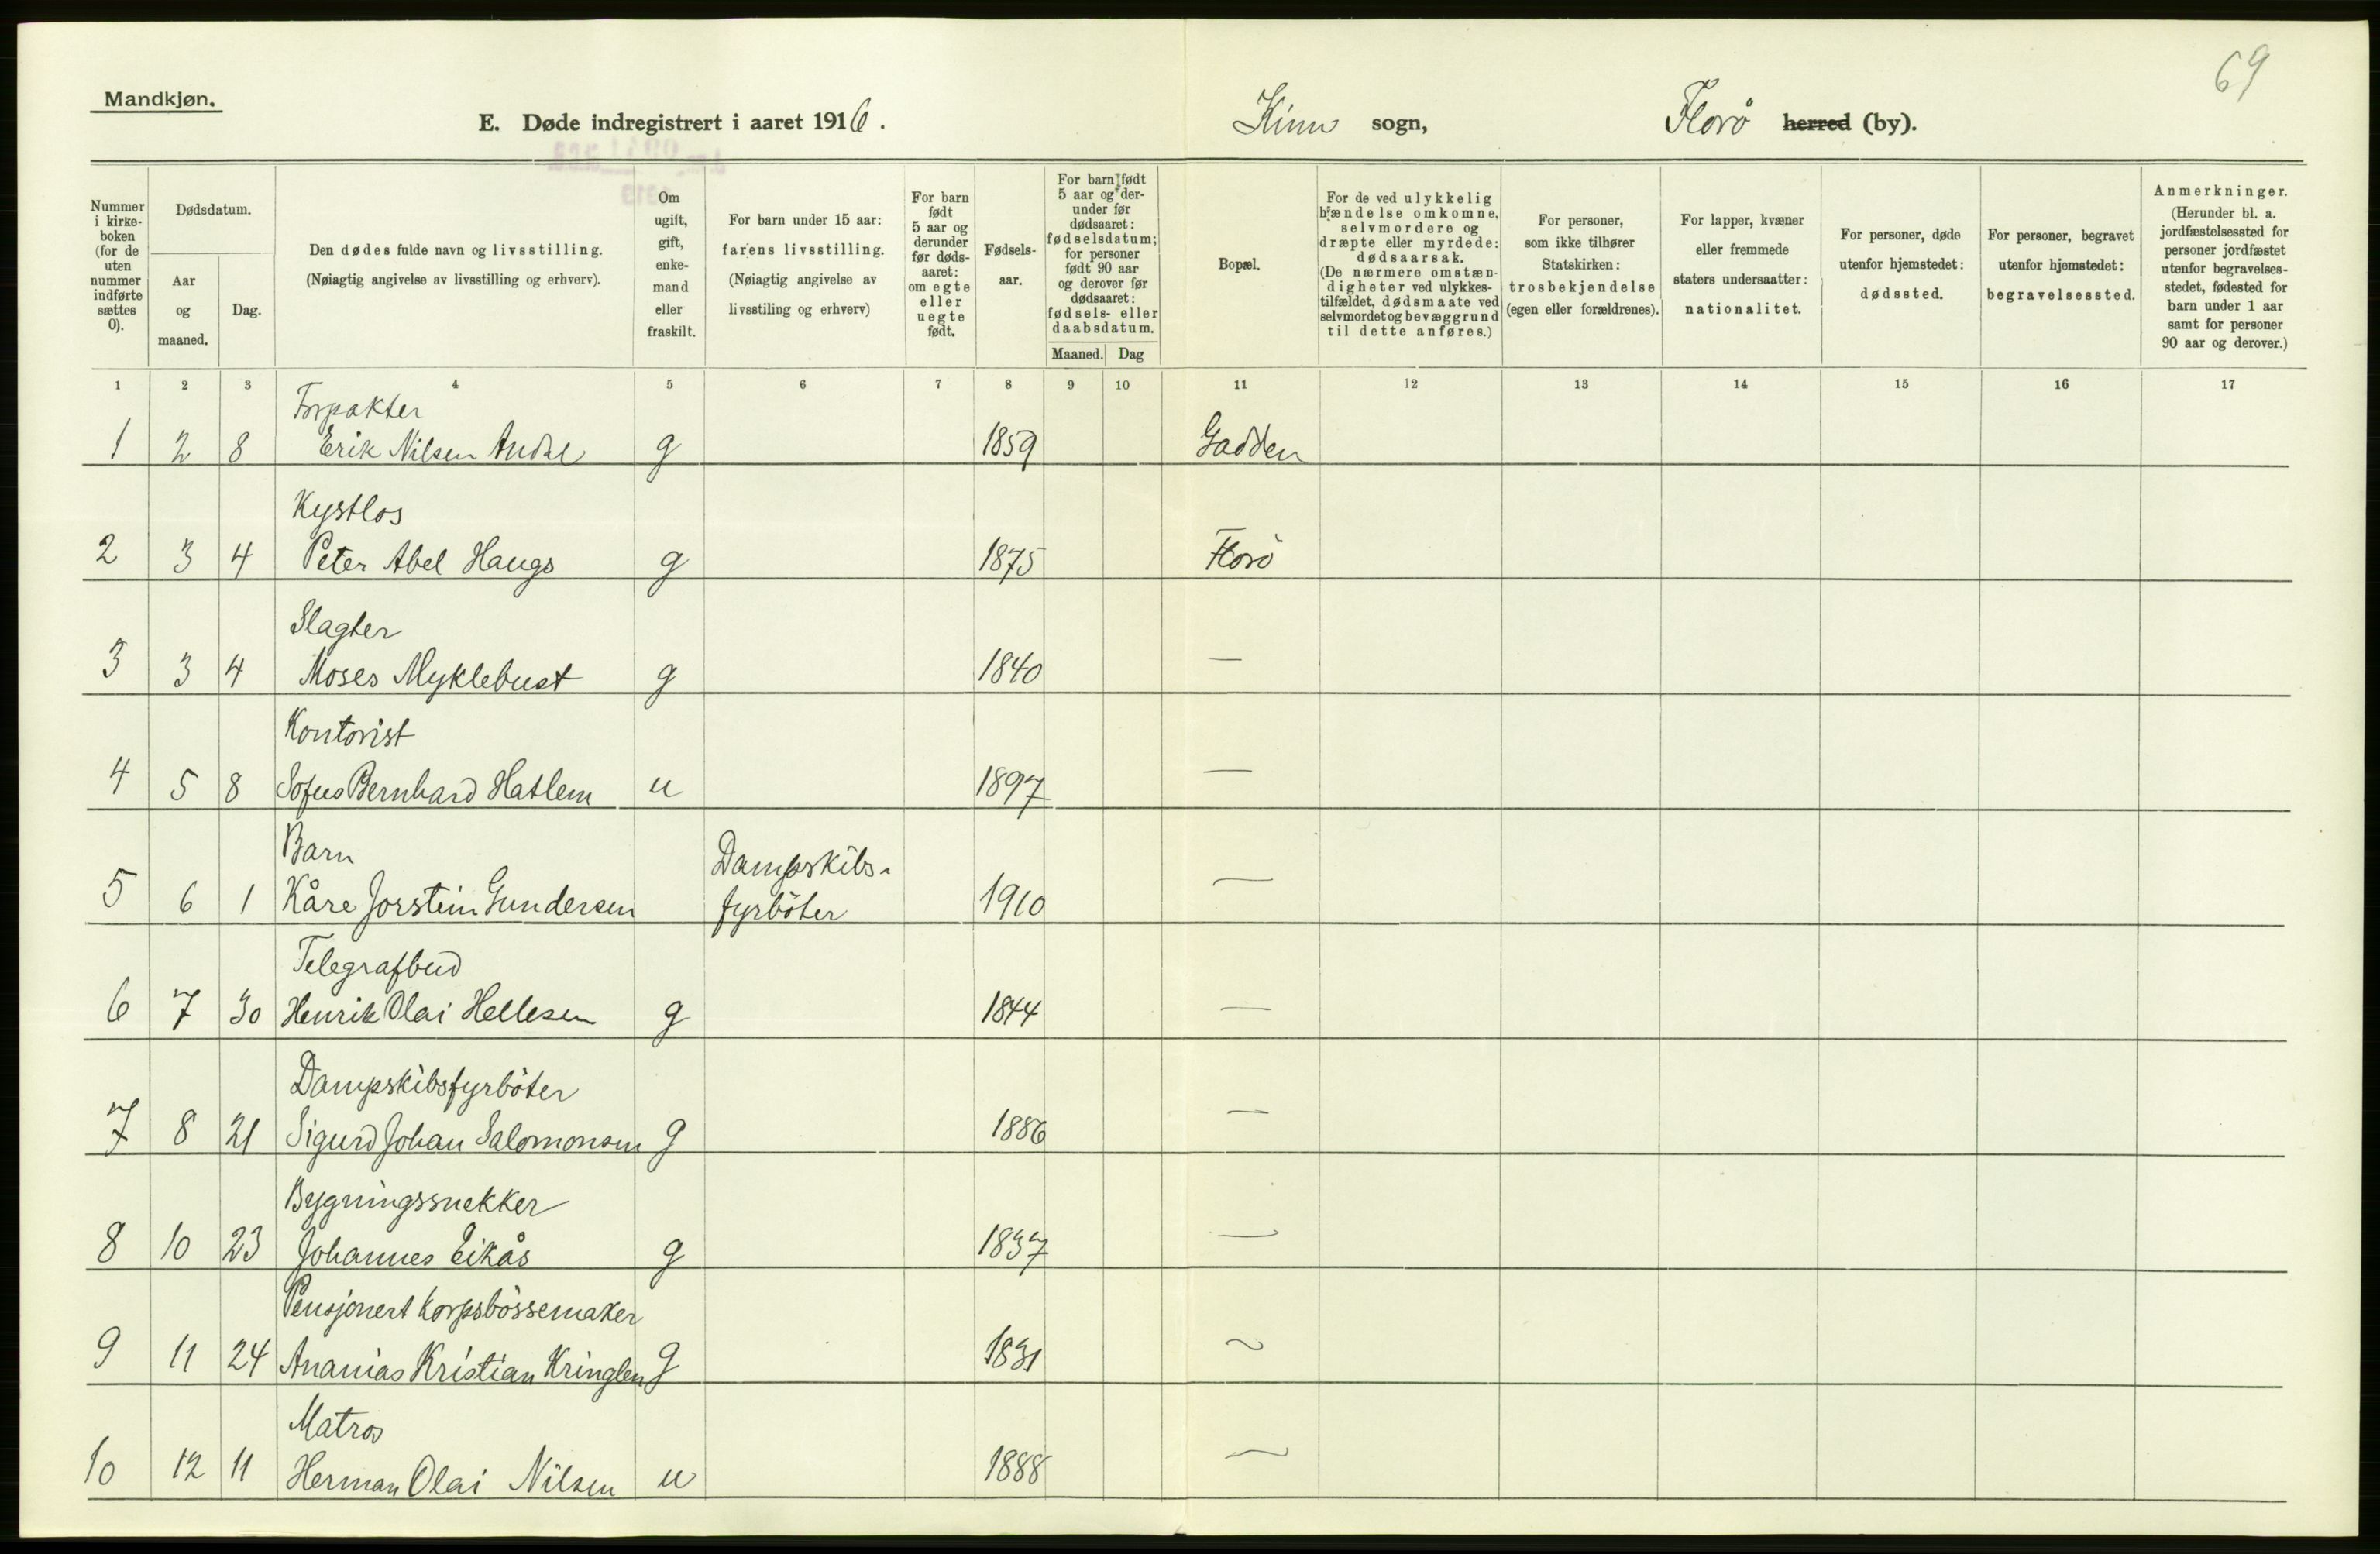 69
Mandkjøn.
E. Døde indregistrert i aaret 1916. Kinn sogn, Florö herred (by).
Nummer i kirke-boken (for de uten nummer indførte sættes 0).
Dødsdatum.
Aar og maaned.
Dag.
Den dødes fulde navn og livsstilling. (Nøiagtig angivelse av livsstilling og erhverv).
Om ugift, gift, enke-mand eller fraskilt.
For barn under 15 aar: farens livsstilling. (Nøiagtig angivelse av livsstiling og erhverv)
For barn født 5 aar og derunder før døds-aaret: om egte eller uegte født.
Fødsels-aar.
For barn født 5 aar og der-under før dødsaaret: fødselsdatum; for personer født 90 aar og derover før dødsaaret: fødsels- eller daabsdatum.
Maaned. Dag
Bopæl.
For de ved ulykkelig hændelse omkomne, selvmordere og dræpte eller myrdede: dødsaarsak. (De nærmere omstæn-digheter ved ulykkes-tilfældet, dødsmaate ved selvmordet og bevæggrund til dette anføres.)
For personer, som ikke tilhører Statskirken: trosbekjendelse (egen eller forældrenes).
For lapper, kvæner eller fremmede staters undersaatter: nationalitet.
For personer, døde utenfor hjemstedet: dødssted.
For personer, begravet utenfor hjemstedet: begravelsessted.
Anmerkninger. (Herunder bl. a. jordfæstelsessted for personer jordfæstet utenfor begravelses-stedet, fødested for barn under 1 aar samt for personer 90 aar og derover.)
1 2 3 4 5 6 7 8 9 10 11 12 13 14 15 16 17
Forpakter
1 2 8 Erik Nilsen g 1859 Gadden
Kystlos
2 3 4 Peter Abel Haugs g 1875 Florö
Slagter
3 3 4 Moses Myklebust g 1840 —
Kontorist
4 5 8 Sofus Bernhard Hatlem u 1897 —
Barn Dampskibs-
5 6 1 Kåre Jorstein Gundersen fyrböter 1910 —
Telegrafbud
6 7 30 Henrik Olai Hellesen g 1844 —
Dampskibsfyrböter
7 8 21 Sigurd Johan Salomonsen g 1886 —
Bygningssnekker
8 10 23 Johannes Eikås g 1837 —
Pensjonert korpsbössemaker
9 11 24 Ananias Kristian Kringlen g 1831 ~
Matros
10 12 11 Herman Olai Nilsen u 1888 —